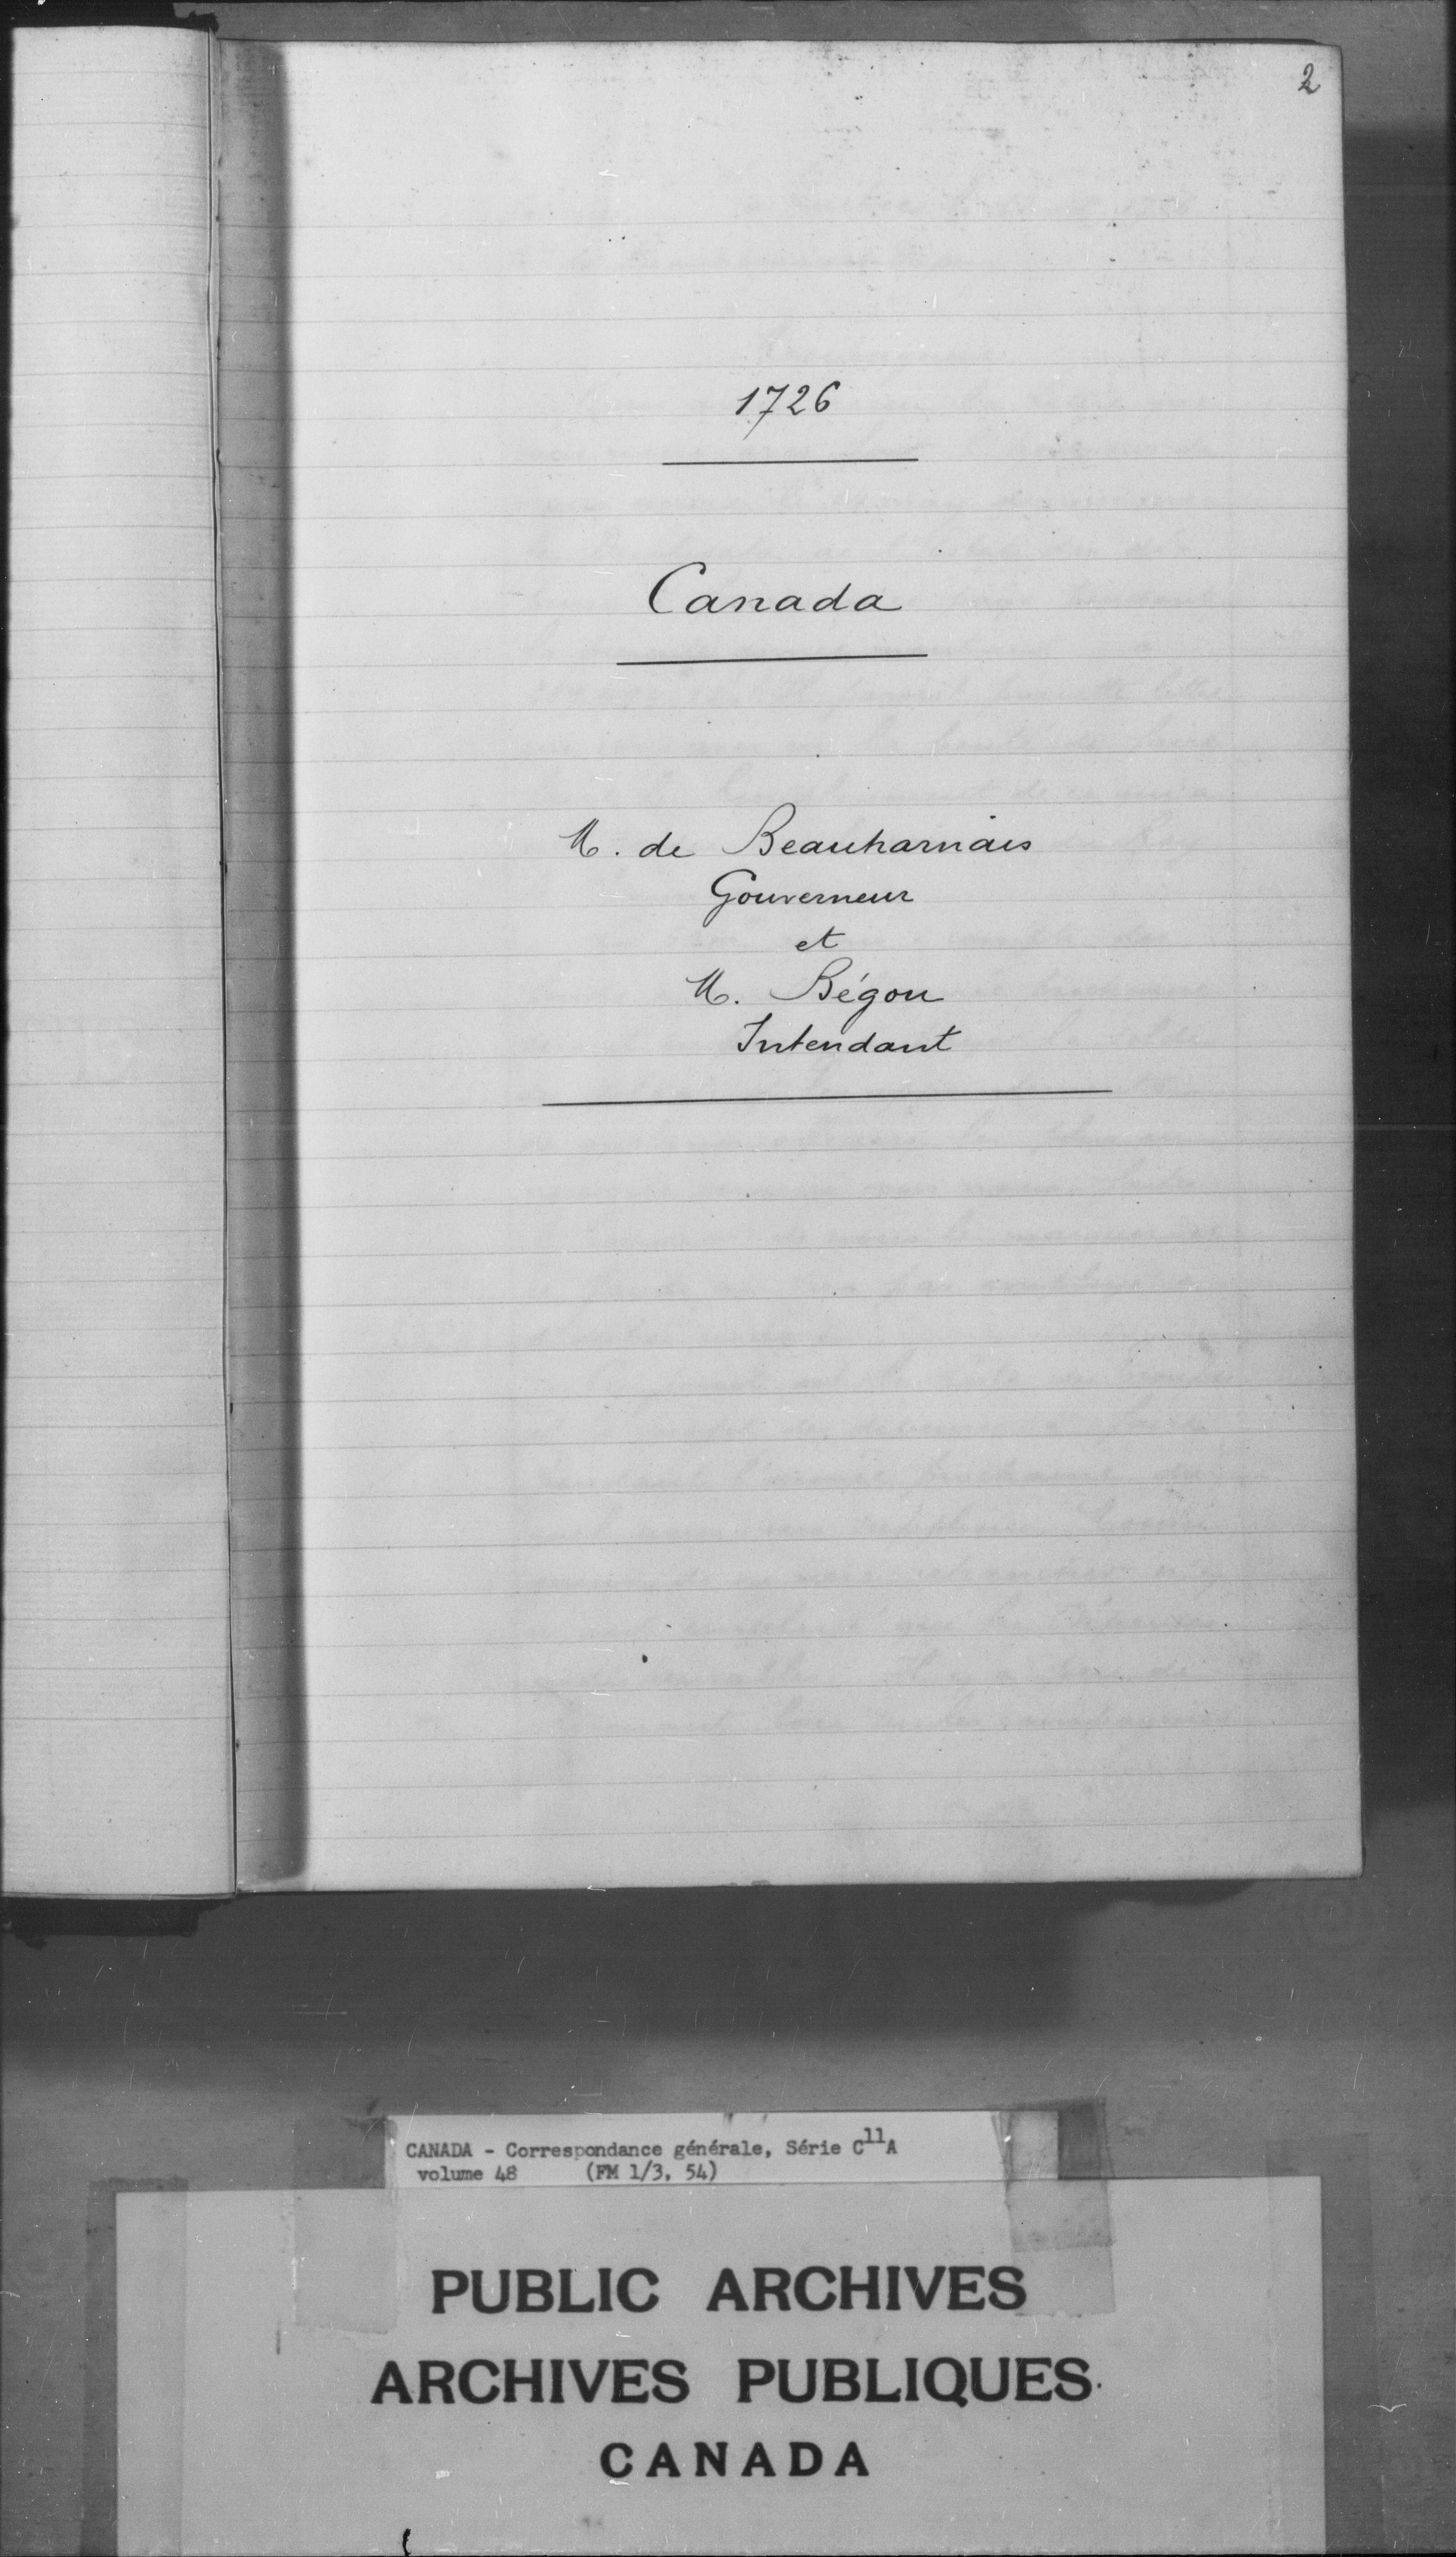 2
1726
Canada
M. de Beauharnais
Gouverneur
et
M. Bégon
Intendant
CANADA - Correspondance générale, Série C11A
volume 48 (FM 1/3, 54)
PUBLIC ARCHIVES
ARCHIVES PUBLIQUES
CANADA